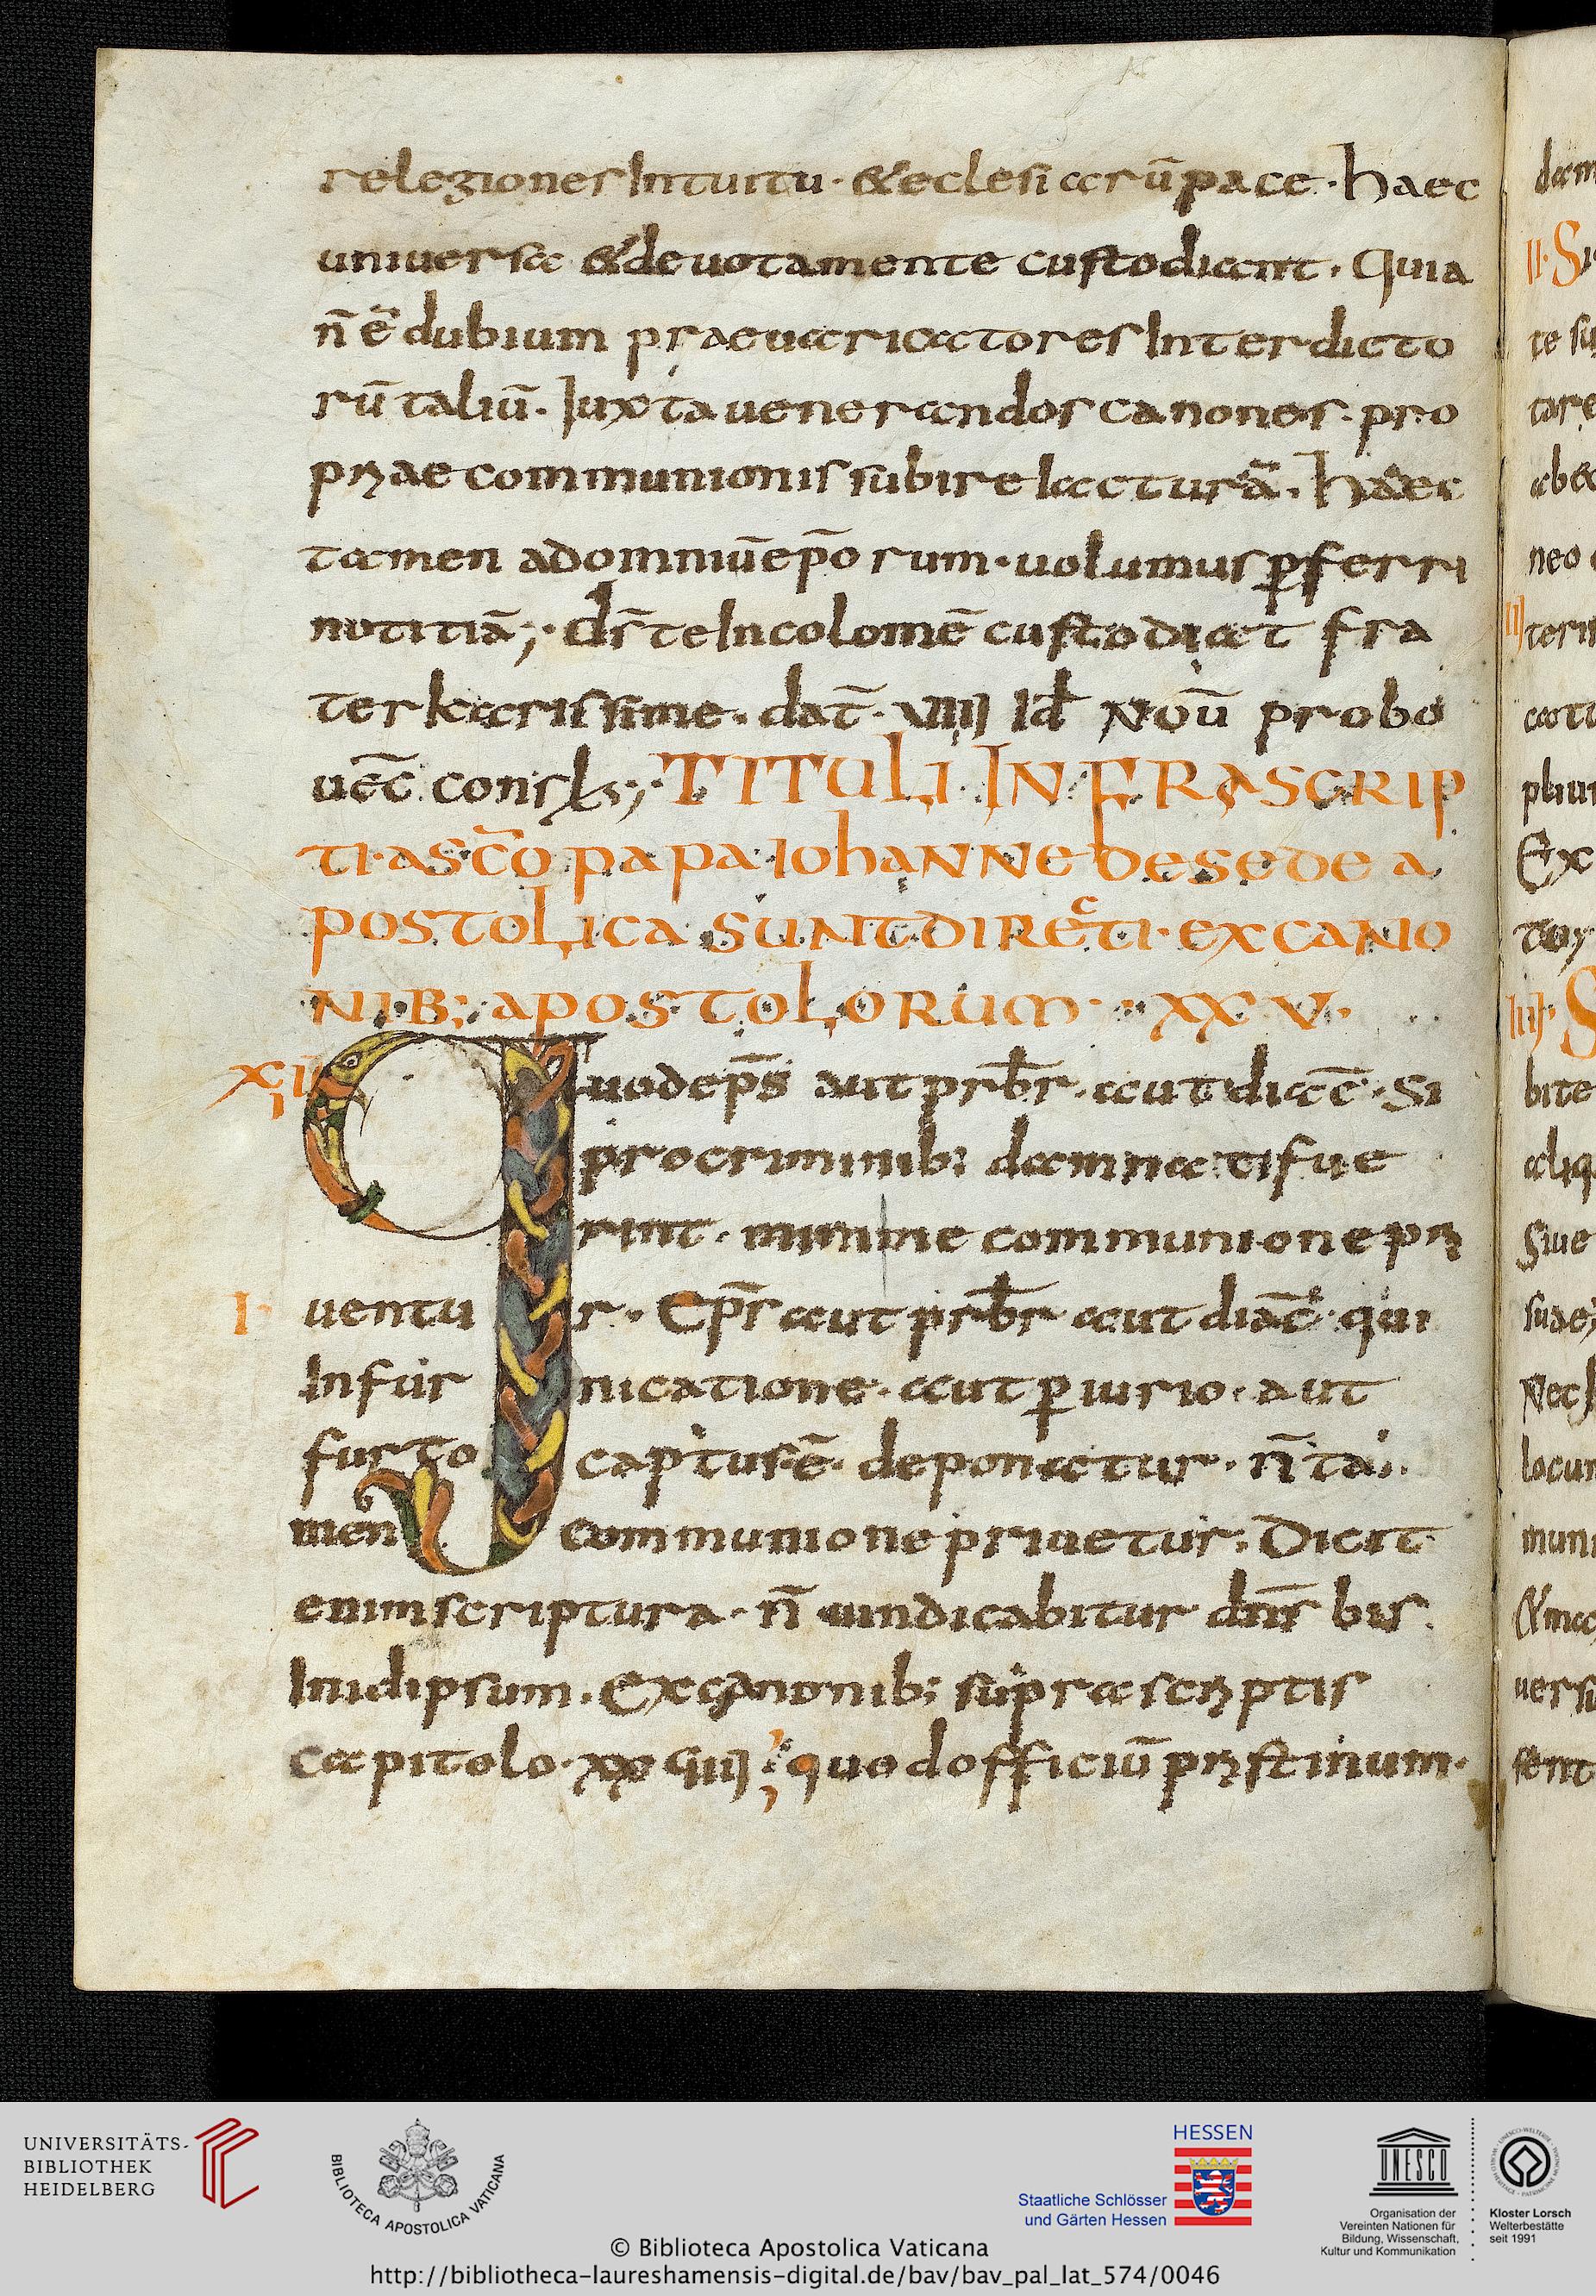 relegiones Intuitu · & eclesiarū pace · haec
universa & devotamente custodiant. Quia
n̄ ē dubium praevaricatores Interdicto
rū taliū. Iuxta venerandos canones. pro
priae communionis subire iacturā. haec
tamen ad omniū ep̄orum · volumus ꝑferri
notitiā; ds̄ te Incolomē custodiat fra
ter karissime. dat̄. VIIII Id Nov̄ probo
vc̄c̄ consls;· TITULI. INFRASCRIP
TI · A SC̄O PAPA IOHANNE DE SEDE A
POSTOLICA SUNT DIRECTI · EX CANO
NIB; APOSTOLORUM · XXV ·
XII
Quod ep̄s aut prb̄r · aut diac̄ · Si
pro criminib; damnati fue
rint · minime communione pri
I · ventur · Ep̄s aut prb̄r aut diac̄ · qui
In furnicatione · aut ꝑiurio · aut
furto captus ē · deponatur · n̄ ta
men communione privetur. Dicit
enim scriptura · n̄ vindicabitur dn̄s bis
In id ipsum. Ex canonib; suprascriptis
capitolo · XXVIIII quod officiū pristinum ·
II · S
III
III · S
UNIVERSITÄTS-
BIBLIOTHEK
HEIDELBERG
BIBLIOTECA APOSTOLICA VATICANA
HESSEN
Staatliche Schlösser
und Gärten Hessen
UNESCO
Organisation der
Vereinten Nationen für
Bildung, Wissenschaft,
Kultur und Kommunikation
Kloster Lorsch
Welterbestätte
seit 1991
© Biblioteca Apostolica Vaticana
http://bibliotheca-laureshamensis-digital.de/bav/bav_pal_lat_574/0046